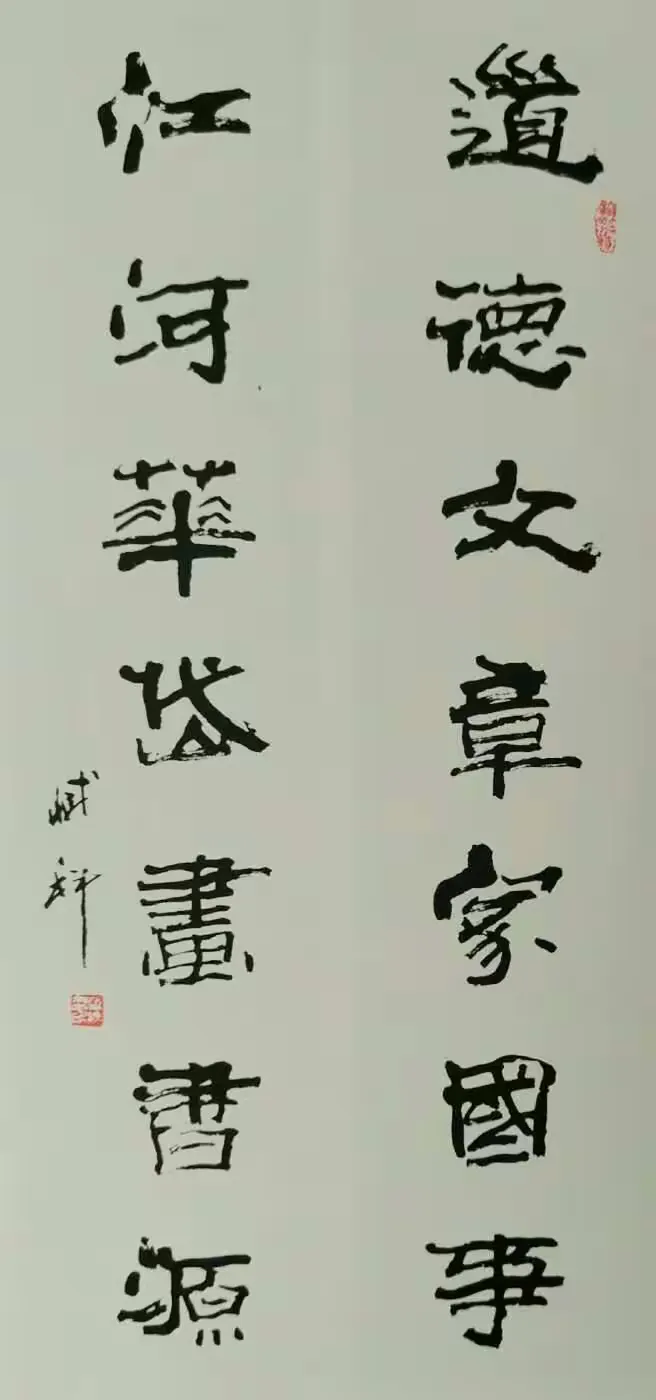 道德文章家國事
江河華岱畫書源